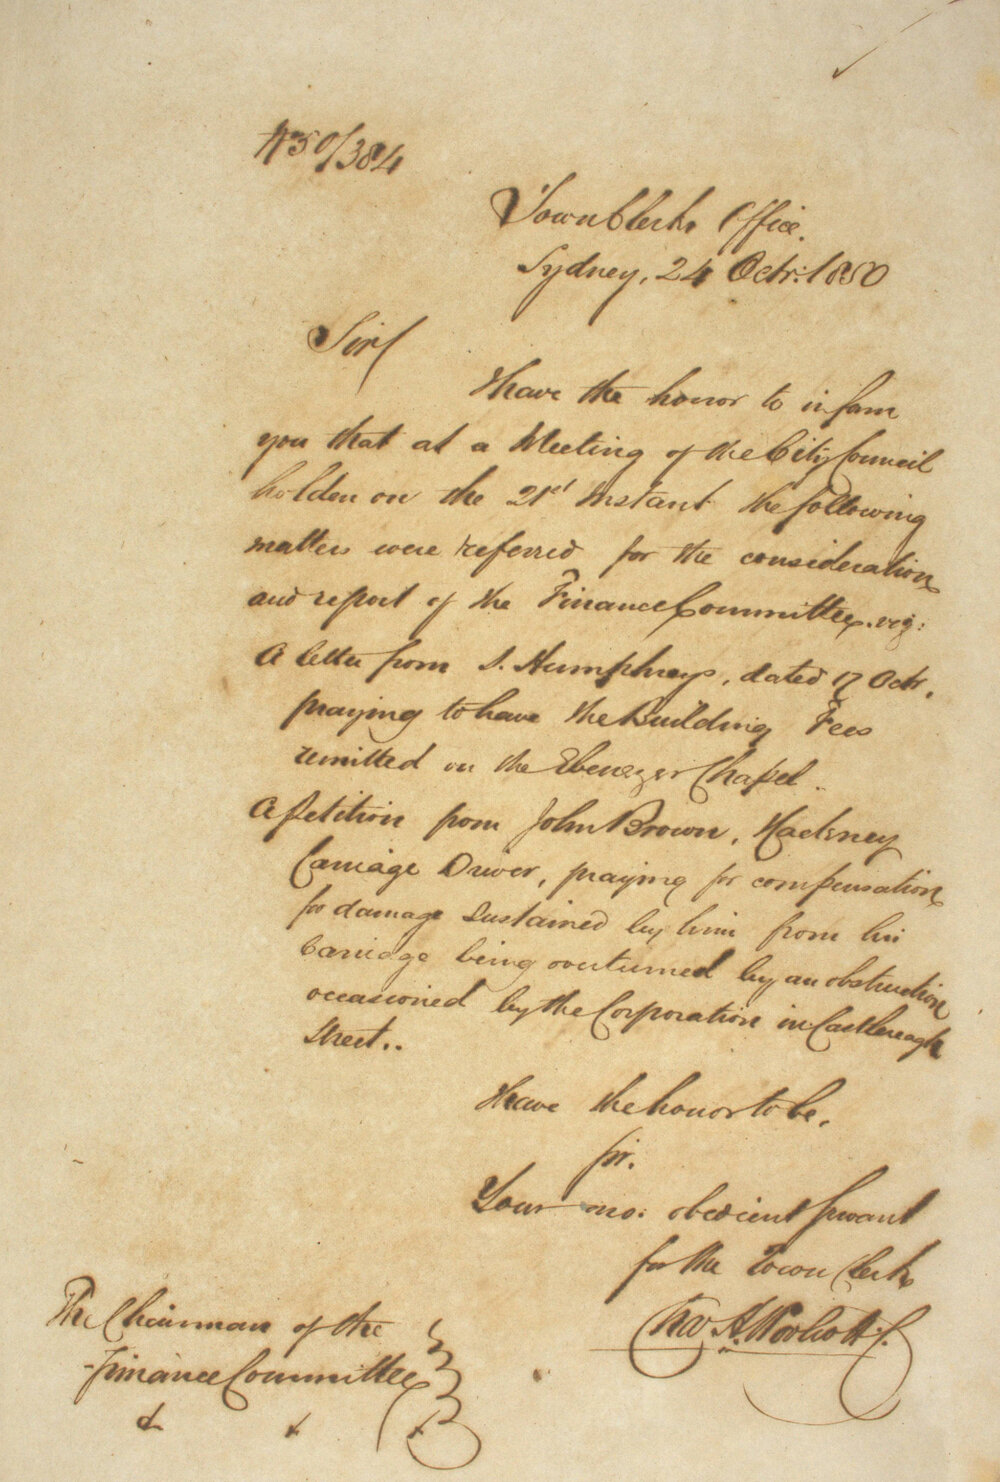 No 50/384
Town Clerks Office.
Sydney, 24 Octr: 1850
Sir/
I have the honor to inform
you that at a Meeting of the City Council
holden on the 21st Instant the following
matters were referred for the consideration
and report of the Finance Committee. viz:
A letter from S. Humphreys, dated 17 Octr.
praying to have the Building Fees
remitted on the Ebenezer Chapel.
A petition from John Brown, Hackney
Carriage Driver, praying for compensation
for damage sustained by him from his
Carriage being overturned by an obstruction
occasioned by the Corporation in Castlereagh
Street..
I have the honor to be,
Sir.
Your mo: obedient servant
for the Town Clerk
The Chairman of the
Finance Committee
&